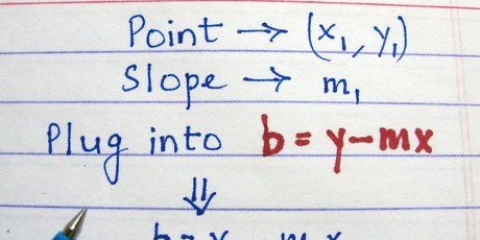 Point → (x₁, y₁)
Slope → m₁
Plug into b = y - mx
⇓